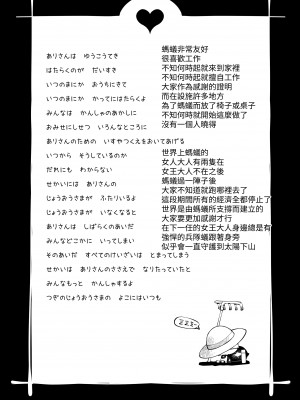 ありさんは　ゆうこうてき
はたらくのが　だいすき
いつのまにか　おうちにきて
いつのまにか　かってにはたらくよ
みんなは　かんしゃのあかしに
おみせにしせつ　いろんなところに
ありさんのための　いすやつくえをおいてあげる
いつから　そうしているのか
だれにも　わからない
せかいには　ありさんの
じょうおうさまが　ふたりいるよ
じょうおうさまが　いなくなると
ありさんは　しばらくのあいだ
みんなどこかに　いってしまい
そのあいだ　すべてのけいざいは　とまってしまう
せかいは　ありさんのささえで　なりたっていたと
みんなもっと　かんしゃするよ
つぎのじょうおうさまの　よこにはいつも
螞蟻非常友好
很喜歡工作
不知何時起就來到家裡
不知何時起就擅自工作
大家作為感謝的證明
而在設施許多地方
為了螞蟻放了椅子或桌子
不知何時開始這麼做了
沒有一個人曉得
世界上螞蟻的
女人大人有兩隻在
女王大人不在之後
螞蟻過一陣子後
大家不知道就跑哪裡去了
這段期間所有的經濟全都停止了
世界是由螞蟻所支撐而建立的
大家要更加感謝才行
在下一任的女王大人身邊總是有
強悍的兵隊蟻跟著身旁
似乎會一直守護到太陽下山